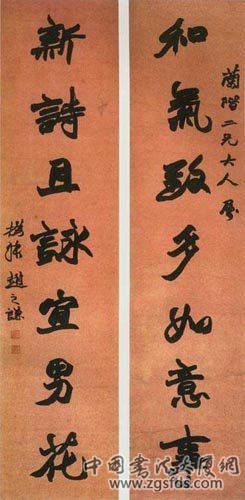 蘭階二兄大人屬
和氣致多如意事
新詩且詠宜男花
撝叔趙之謙
中国书法大厦网
www.zgsfds.com